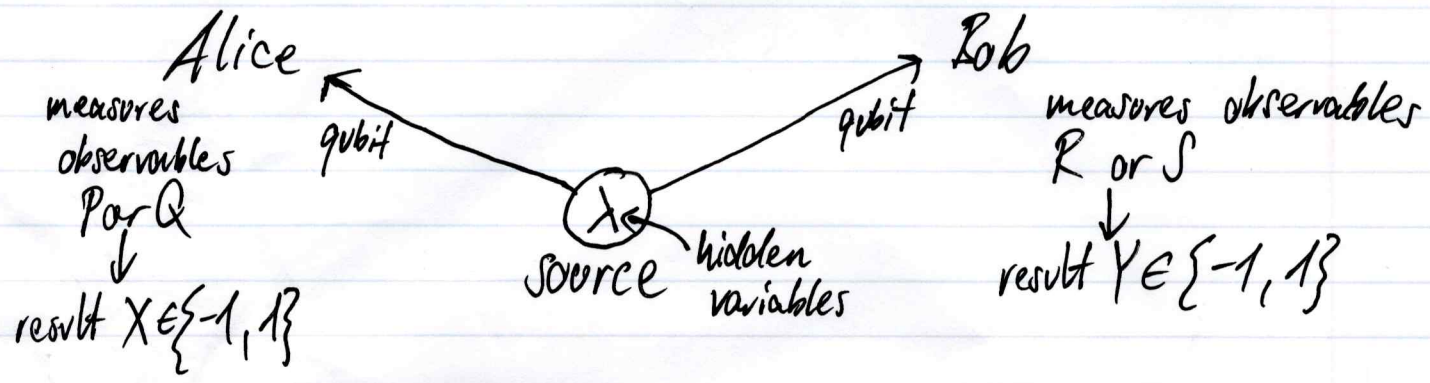 Alice
measures
observables
P or Q
result X∈{-1, 1}
qubit
λ
source
hidden
variables
qubit
Bob
measures observables
R or S
result Y∈{-1, 1}